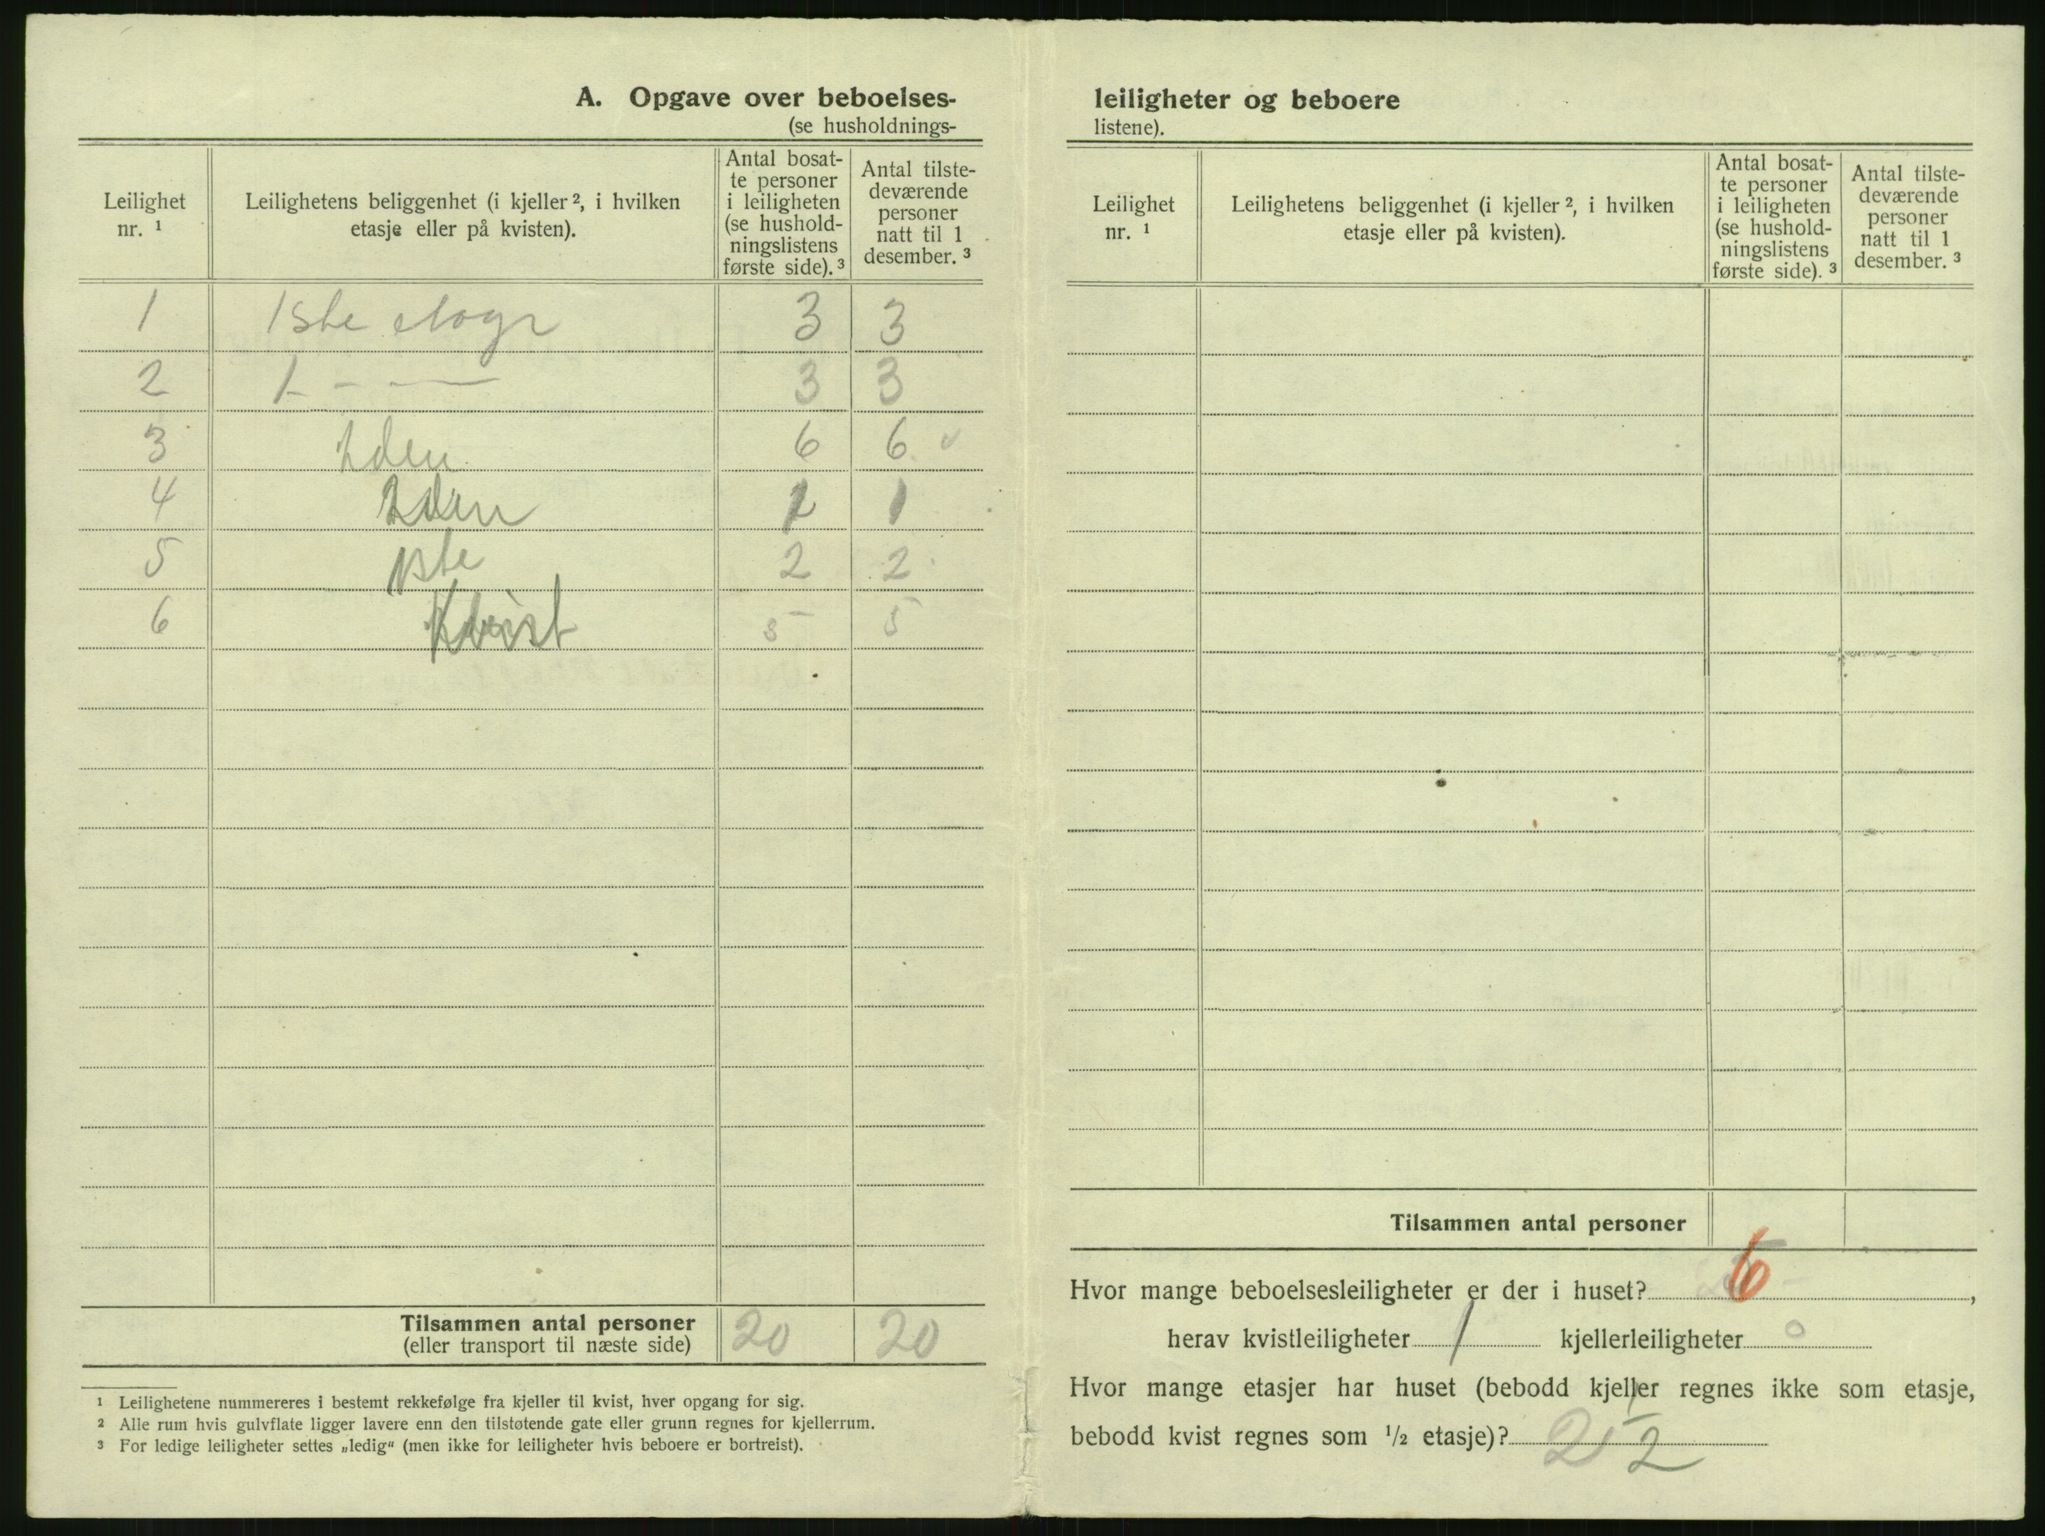 A. Opgave over beboelses-
(se husholdnings-
Leilighet nr. ¹
Leilighetens beliggenhet (i kjeller ², i hvilken etasje eller på kvisten).
Antal bosat-
te personer
i leiligheten
(se hushold-
ningslistens
første side). ³
Antal tilste-
deværende
personer
natt til 1
desember. ³
1 1ste etage 3 3
2 1 - — 3 3
3 2den 6 6
4 2den 1 1
5 1ste 2 2
6 Kvist 5 5
Tilsammen antal personer 20 20
(eller transport til næste side)
¹ Leilighetene nummereres i bestemt rekkefølge fra kjeller til kvist, hver opgang for sig.
² Alle rum hvis gulvflate ligger lavere enn den tilstøtende gate eller grunn regnes for kjellerrum.
³ For ledige leiligheter settes „ledig“ (men ikke for leiligheter hvis beboere er bortreist).
leiligheter og beboere
listene).
Leilighet nr. ¹
Leilighetens beliggenhet (i kjeller ², i hvilken etasje eller på kvisten).
Antal bosat-
te personer
i leiligheten
(se hushold-
ningslistens
første side). ³
Antal tilste-
deværende
personer
natt til 1
desember. ³
Tilsammen antal personer
Hvor mange beboelsesleiligheter er der i huset? 6,
herav kvistleiligheter 1 kjellerleiligheter 0
Hvor mange etasjer har huset (bebodd kjeller regnes ikke som etasje,
bebodd kvist regnes som ½ etasje)? 2 ½